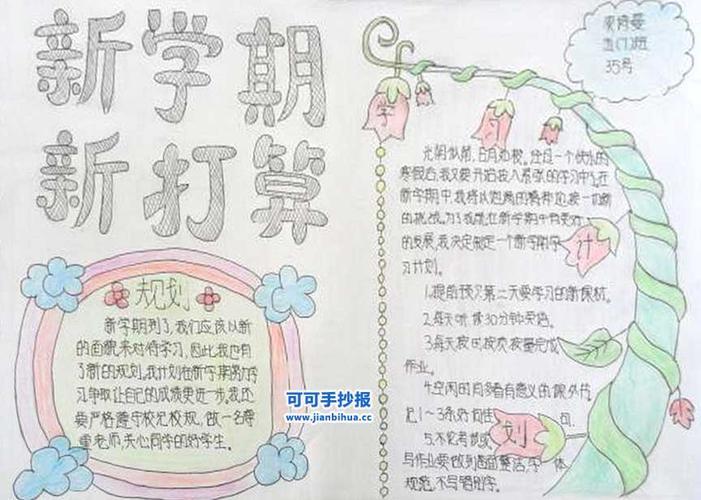 新学期
新打算
规划
新学期到了,我们应该以新
的面貌来对待学习,因此,我也有
了新的规划。我计划在新学期的学
习争取让自己的成绩更进一步,我还
要严格遵守校纪校规,做一名尊
重老师,关心同学的好学生。
五(7)班
35号
学
习
计
划
光阴似箭,日月如梭。经过一个快乐的
寒假后,我又要开始投入紧张的学习中了。在
新学期中,我将以饱满的精神迎接一切新
的挑战。为了我能在新学期中有更好
的发展,我决定制定一个新学期学
习计划。
1.提前预习第二天要学习的新课材。
2.每天听读30分钟英语。
3.每天按时按质按量完成
作业。
4.空闲时间多看有意义的课外书,
记1~3条好句佳
写作业要做到书面整洁,字体
规范,不写错别字。
小
可可手抄报
www.jianbihua.cc